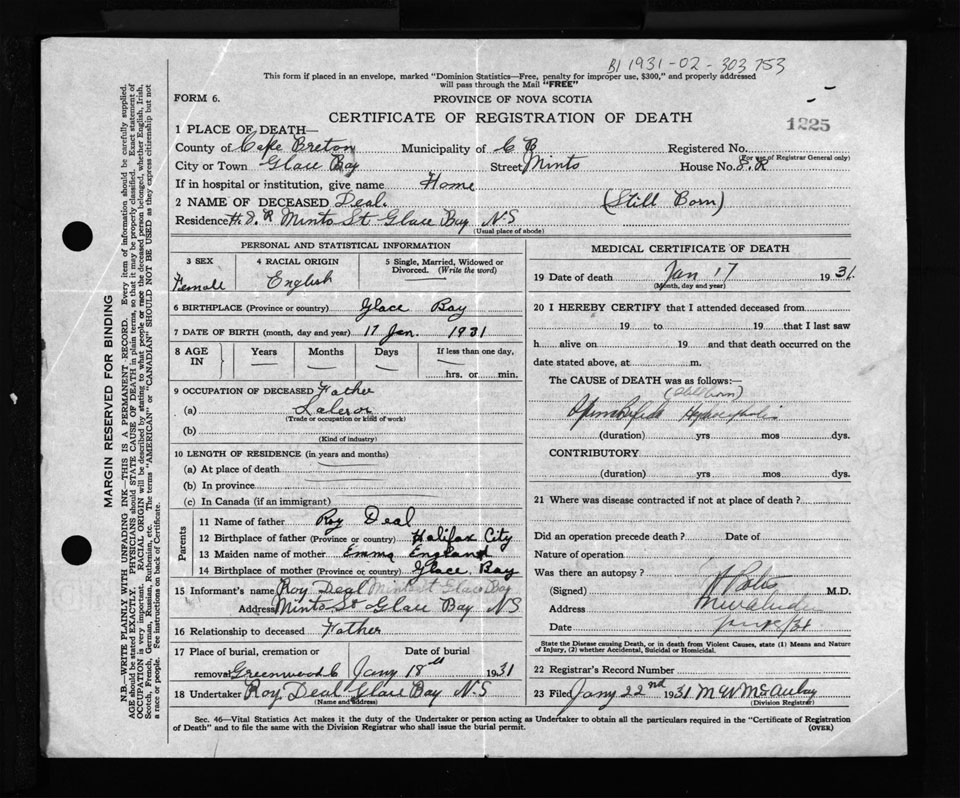 BJ 1931-02-303753
This form if placed in an envelope, marked "Dominion Statistics—Free, penalty for improper use, $300," and properly addressed
will pass through the Mail "FREE"
FORM 6.
PROVINCE OF NOVA SCOTIA
CERTIFICATE OF REGISTRATION OF DEATH
1225
1 PLACE OF DEATH—
County of Cape Breton Municipality of C B Registered No.
(For use of Registrar General only)
City or Town Glace Bay Street Minto House No. S.R
If in hospital or institution, give name Home
2 NAME OF DECEASED Deal. (Still Born)
Residence H. S. R Minto St Glace Bay N.S
(Usual place of abode)
PERSONAL AND STATISTICAL INFORMATION
3 SEX
Female
4 RACIAL ORIGIN
English
5 Single, Married, Widowed or
Divorced. (Write the word)
6 BIRTHPLACE (Province or country) Glace Bay
7 DATE OF BIRTH (month, day and year) 17 Jan. 1931
8 AGE IN
Years Months Days If less than one day,
hrs. or min.
9 OCCUPATION OF DECEASED Father
(a)
(Trade or occupation or kind of work)
(b)
(Kind of industry)
10 LENGTH OF RESIDENCE (in years and months)
(a) At place of death
(b) In province
(c) In Canada (if an immigrant)
Parents
11 Name of father Roy Deal
12 Birthplace of father (Province or country) Halifax City
13 Maiden name of mother Emma England
14 Birthplace of mother (Province or country) Glace Bay
15 Informant's name Roy Deal Minto St Glace Bay
Address Minto St Glace Bay NS
16 Relationship to deceased Father
17 Place of burial, cremation or Date of burial
removal Greenwood C Jany 18th 1931
18 Undertaker Roy Deal Glace Bay N.S
(Name and address)
MEDICAL CERTIFICATE OF DEATH
19 Date of death Jan 17 1931
(Month, day and year)
20 I HEREBY CERTIFY that I attended deceased from
19 to 19 that I last saw
h alive on 19 and that death occurred on the
date stated above, at m.
The CAUSE of DEATH was as follows:—
(Stillborn)
Spina Bifida
(duration) yrs mos dys.
CONTRIBUTORY
(duration) yrs. mos. dys.
21 Where was disease contracted if not at place of death?
Did an operation precede death? Date of
Nature of operation
Was there an autopsy?
(Signed) M.D.
Address
Date
State the Disease causing Death, or in death from Violent Causes, state (1) Means and
Nature of Injury, (2) whether Accidental, Suicidal or Homicidal.
22 Registrar's Record Number
23 Filed Jany 22nd 1931 M W McAulay
(Division Registrar)
Sec. 46—Vital Statistics Act makes it the duty of the Undertaker or person acting as Undertaker to obtain all the particulars required in the "Certificate of Registration
of Death" and to file the same with the Division Registrar who shall issue the burial permit. (OVER)
MARGIN RESERVED FOR BINDING
N.B.—WRITE PLAINLY WITH UNFADING INK—THIS IS A PERMANENT RECORD. Every item of information should be carefully supplied.
AGE should be stated EXACTLY. PHYSICIANS should STATE CAUSE OF DEATH in plain terms, so that it may be properly classified. Exact statement of
OCCUPATION is very important. RACIAL ORIGIN will be described by stating to what people or race the deceased person belonged, whether English, Irish,
Scotch, French, German, Russian, Ruthenian, etc. The terms "AMERICAN" or "CANADIAN" SHOULD NOT BE USED as they express citizenship but not
a race or people. See instructions on back of Certificate.